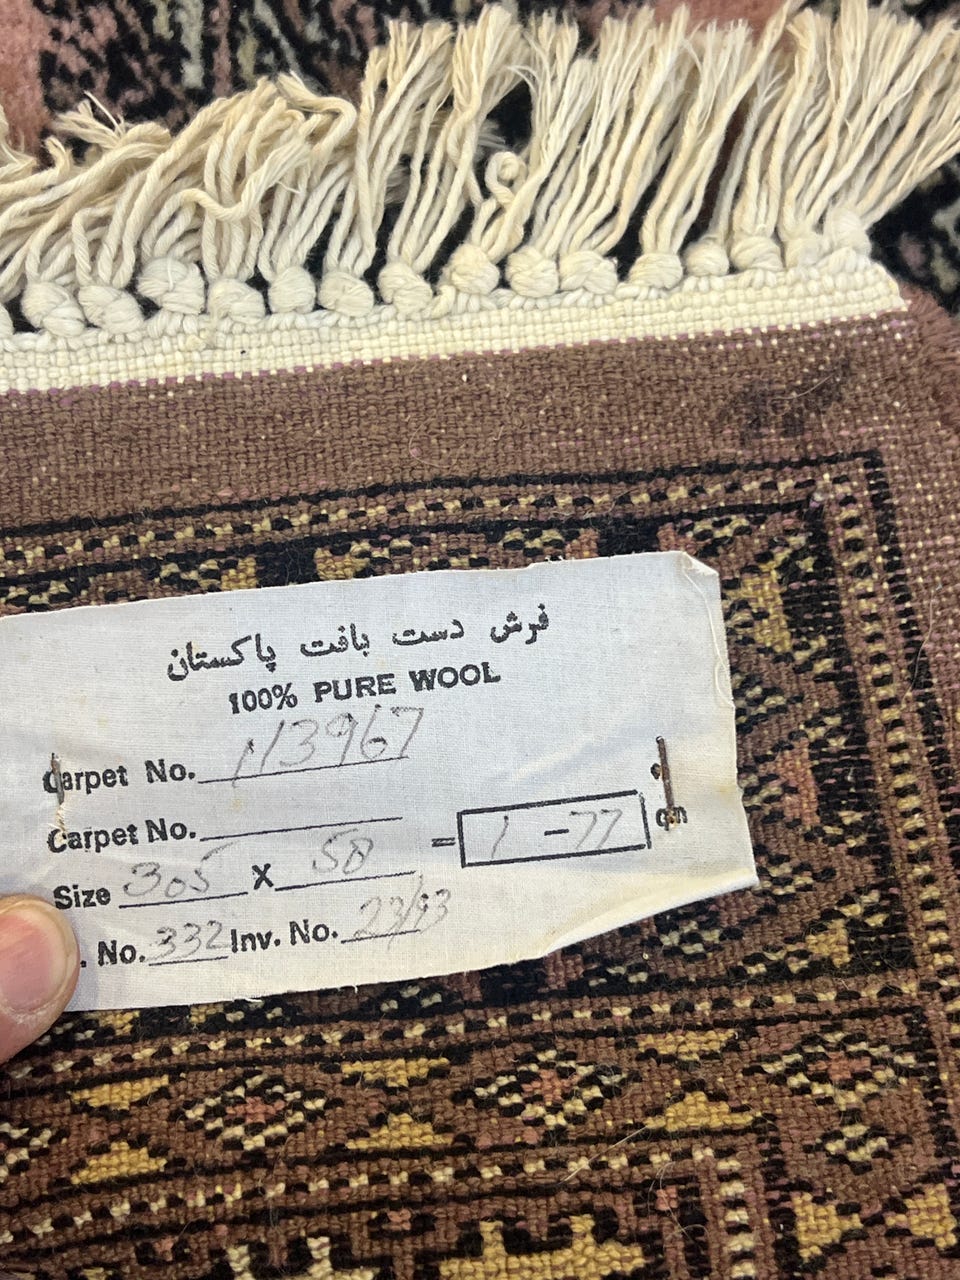 فرش دست بافت پاکستان
100% PURE WOOL
Carpet No. 113967
Carpet No.
Size 305 X 58 = 1-77 qm
. No. 332 Inv. No. 23/93